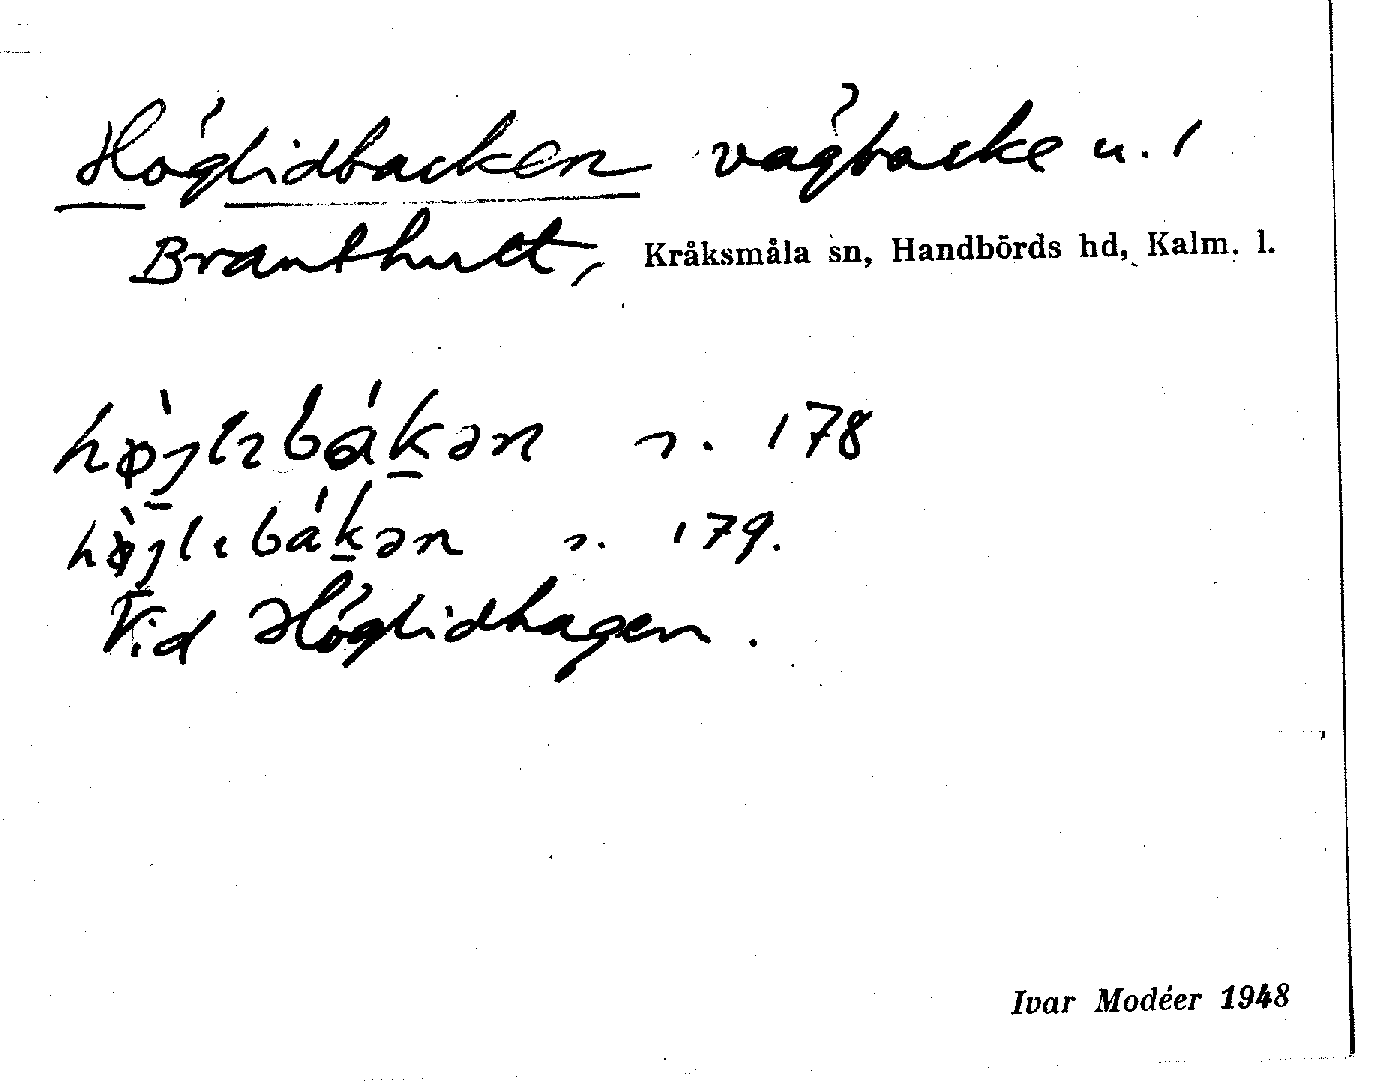 Höglidbacken vägbacke u. 1
Branthult, Kråksmåla sn, Handbörds hd, Kalm. l.
hø̀jlıbákən s. 178
hø̀jlıbákən s. 179.
Vid Höglidhagen.
Ivar Modéer 1948